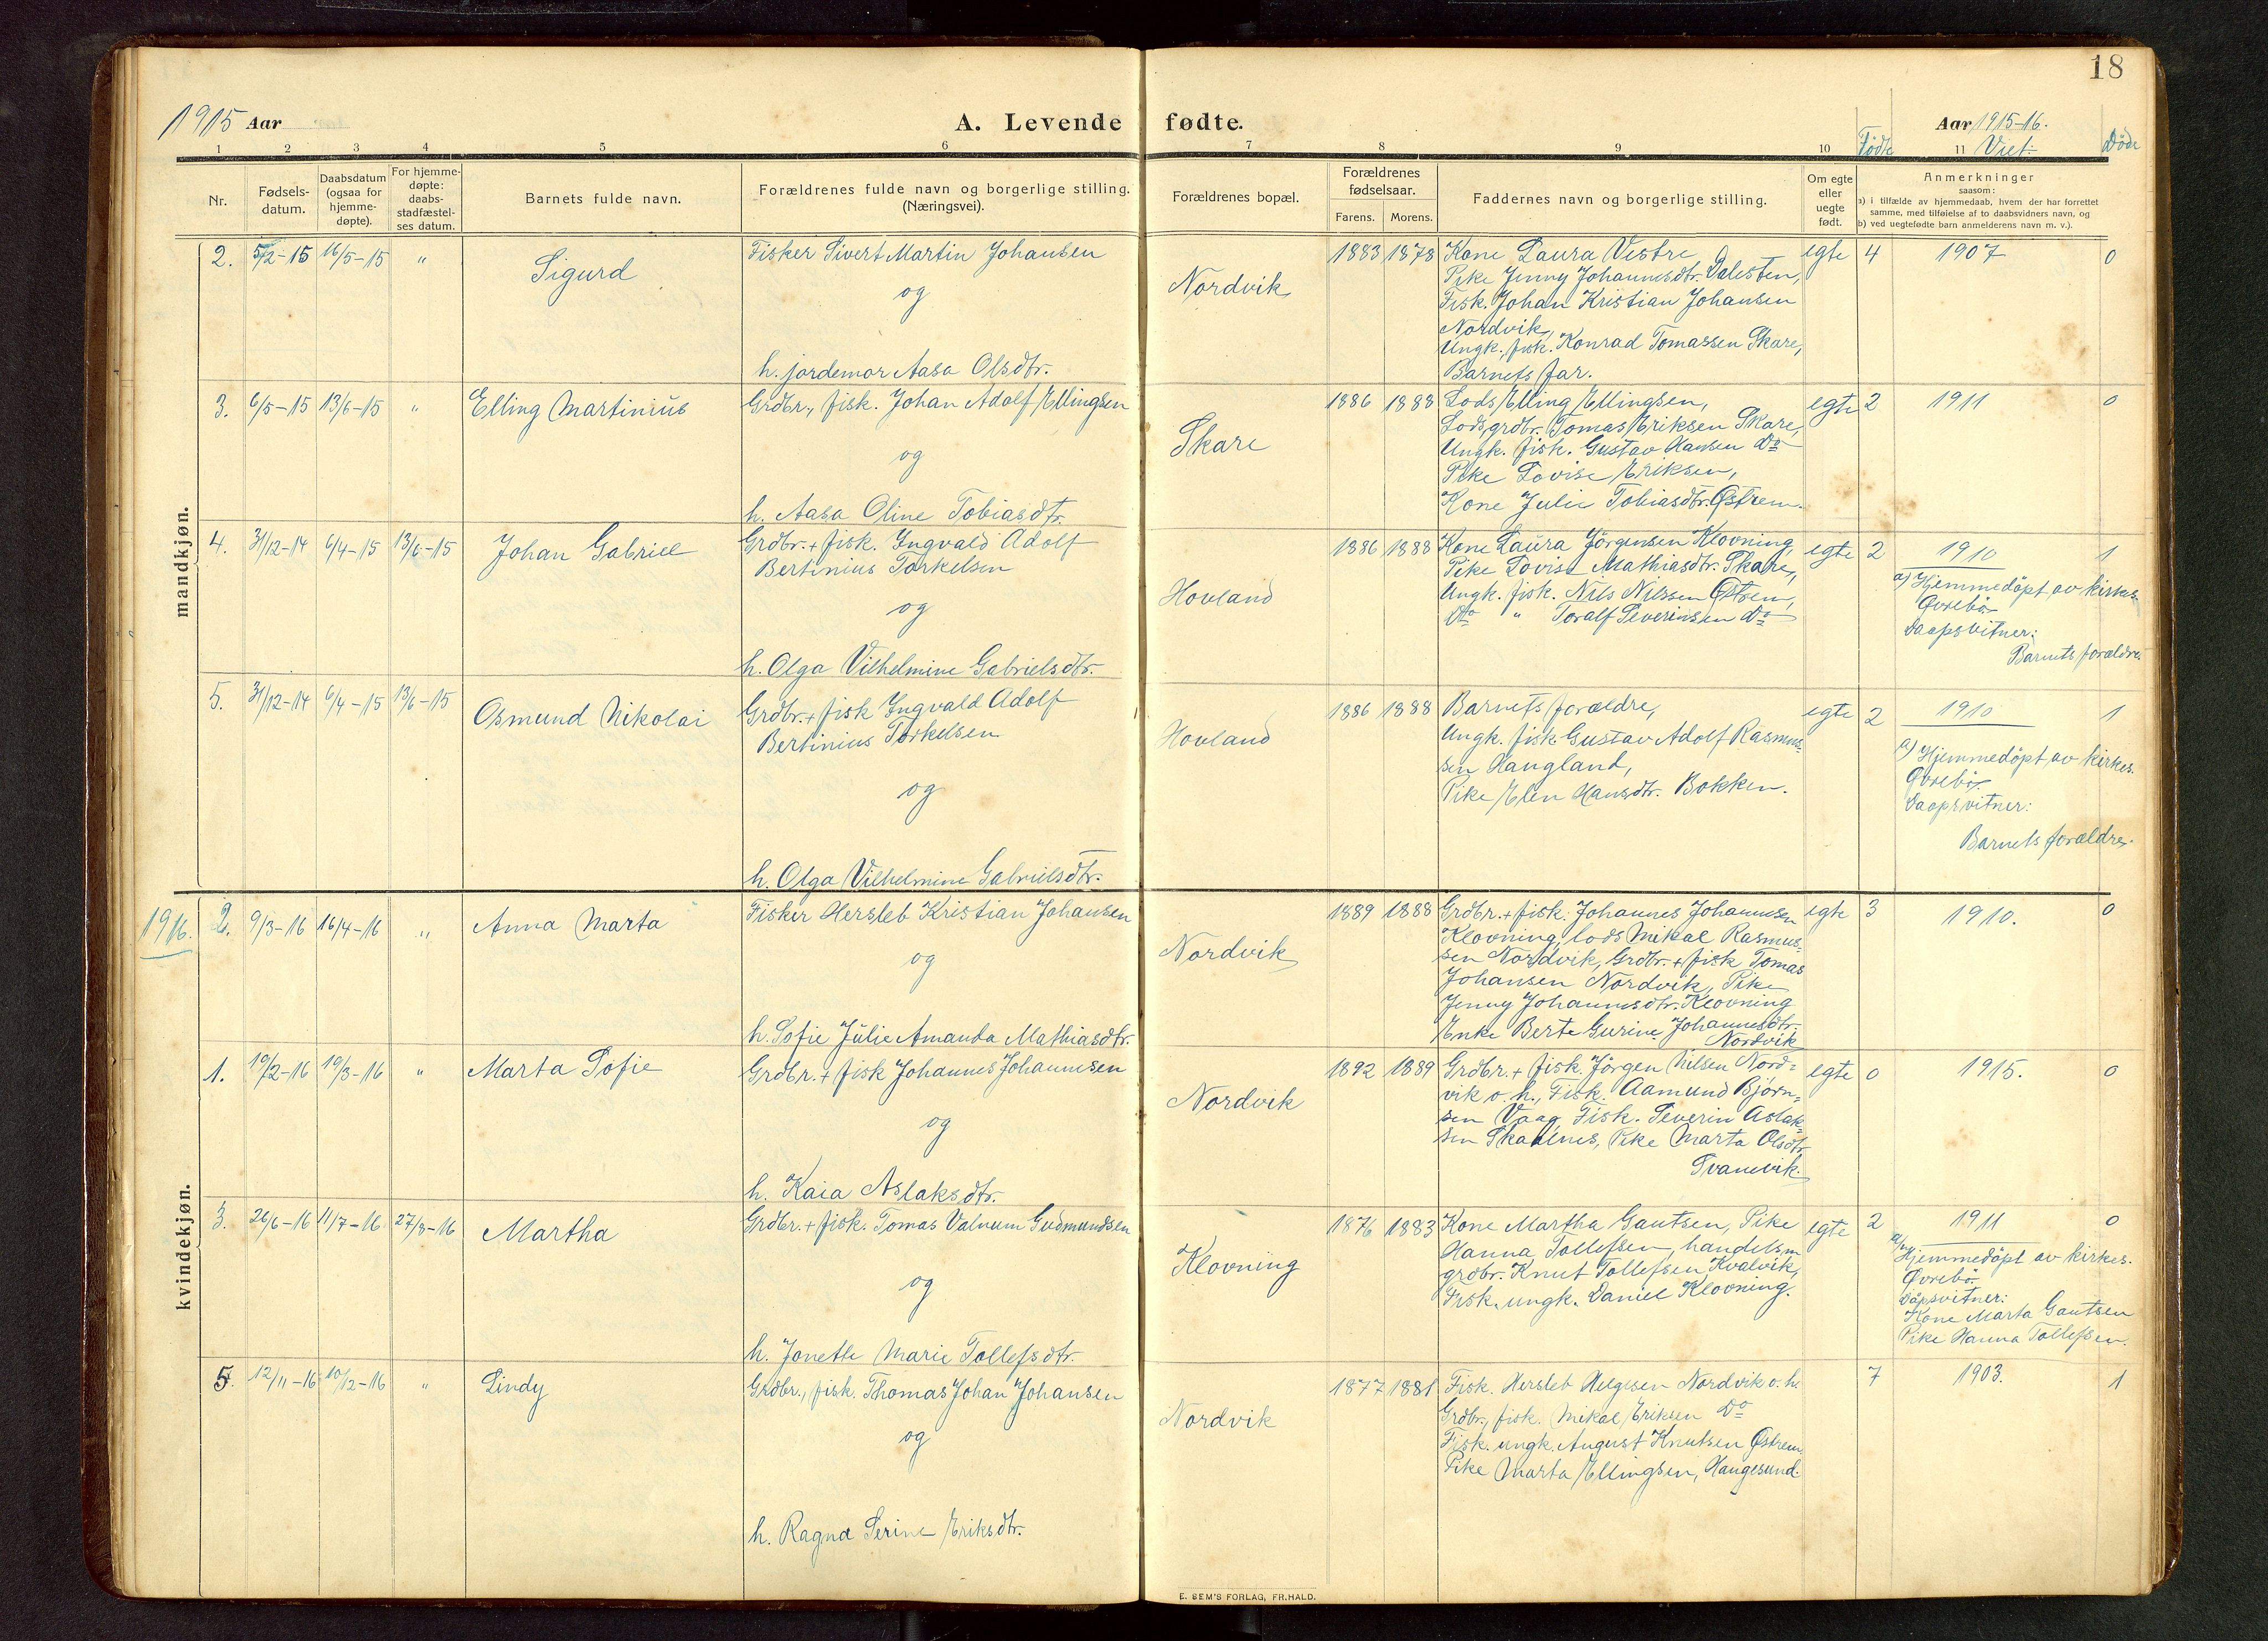 18
1915 Aar
A. Levende fødte.
Aar 1915-16.
1 2 3 4 5 6 7 8 9 10 Födte 11 Viet: Döde
Nr.
Fødsels-
datum.
Daabsdatum
(ogsaa for
hjemme-
døpte).
For hjemme-
døpte:
daabs-
stadfæstel-
ses datum.
Barnets fulde navn.
Forældrenes fulde navn og borgerlige stilling.
(Næringsvei).
Forældrenes bopæl.
Forældrenes
fødselsaar.
Farens. Morens.
Faddernes navn og borgerlige stilling.
Om egte
eller
uegte
født.
Anmerkninger
saasom:
a) i tilfælde av hjemmedaab, hvem der har forrettet
samme, med tilføielse af to daabsvidners navn, og
b) ved uegtefødte barn anmelderens navn m. v.).
mandkjøn.
2. 5/2-15 16/5-15 "
Sigurd
Fisker Sivert Martin Johansen
og
h. jordemor Aasa Olsdtr.
Nordvik
1883 1878
Kone Laura Vestre
Pike Jenny Johannesdtr. Dalesten,
Fisk. Johan Kristian Johansen
Nordvik,
Ungk. fisk. Konrad Tomassen Skare,
Barnets far.
egte 4 1907 0
3. 6/5-15 13/6-15 "
Elling Martinius
Grdbr., fisk. Johan Adolf Ellingsen
og
h. Aasa Oline Tobiasdtr.
Skare
1886 1888
Lods Elling Ellingsen,
Lods, grdbr. Tomas Eriksen Skare,
Ungk. fisk. Gustav Hansen Do
Pike Lovise Eriksen,
Kone Julie Tobiasdtr. Østrem.
egte 2 1911 0
4. 31/12-14 6/4-15 13/6-15
Johan Gabriel
Grdbr. + fisk. Ingvald Adolf
Bertinius Torkelsen
og
h. Olga Vilhelmine Gabrielsdtr.
Hovland
1886 1888
Kone Laura Jörgensen Klovning,
Pike Lovise Mathiasdtr. Skare,
Ungk. fisk. Nils Nilssen Östrem,
Do " Toralf Severinsen Do
egte 2 1910 1
a) Hjemmedöpt av kirkes.
Øvrebö.
Daapsvitner:
Barnets forældre.
5. 31/12-14 6/4-15 13/6-15
Osmund Nikolai
Grdbr. + fisk Ingvald Adolf
Bertinius Torkelsen
og
h. Olga Vilhelmine Gabrielsdtr.
Hovland
1886 1888
Barnets forældre,
Ungk. fisk. Gustav Adolf Rasmus-
sen Haugland,
Pike Elen Hansdtr. Bokken.
egte 2 1910 1
a) Hjemmedöpt av kirkes.
Øvrebö.
Daapsvitner:
Barnets forældre.
1916.
kvindekjøn.
2. 9/3-16 16/4-16 "
Anna Marta
Fisker Hersleb Kristian Johansen
og
h. Sofie Julie Amanda Mathiasdtr.
Nordvik
1889 1888
Grdbr. + fisk. Johannes Johannesen
Klovning, lods Mikal Rasmus-
sen Nordvik, Grdbr. + fisk Tomas
Johansen Nordvik, Pike
Jenny Johannesdtr. Klovning
Enke Berte Gurine Johannesdtr.
Nordvik
egte 3 1910. 0
1. 19/2-16 19/3-16 "
Marta Sofie
Grdbr. + fisk Johannes Johannesen
og
h. Kaia Aslaksdtr.
Nordvik
1892 1889
Grdbr. + fisk. Jörgen Nilsen Nord-
vik o. h., Fisk. Aamund Bjørn-
sen Vaag, Fisk. Severin Aslak-
sen Skaalnes, Pike Marta Olsdtr.
Svanevik.
egte 0 1915. 0
3. 26/6-16 11/7-16 27/8-16
Martha
Grdbr. + fisk. Tomas Valnum Gudmundsen
og
h. Jonette Marie Tollefsdtr.
Klovning
1876 1883
Kone Martha Gautsen, Pike
Hanna Tollefsen, handelsm.
grdbr. Knut Tollefsen Kvalvik,
Fisk. ungk. Daniel Klovning.
egte 2 1911 0
a) Hjemmedöpt av kirkes.
Øvrebö.
Dåpsvitner:
Kone Marta Gautsen
Pike Hanna Tollefsen.
5. 12/11-16 10/12-16 "
Lindy
Grdbr., fisk. Thomas Johan Johansen
og
h. Ragna Serine Eriksdtr.
Nordvik
1877 1881
Fisk. Hersleb Helgesen Nordvik o. h.
Grdbr., fisk. Mikal Eriksen Do
Fisk. ungk. August Knutsen Østrem
Pike Marta Ellingsen, Haugesund.
7 1903. 1
E. SEM'S FORLAG, FR.HALD.